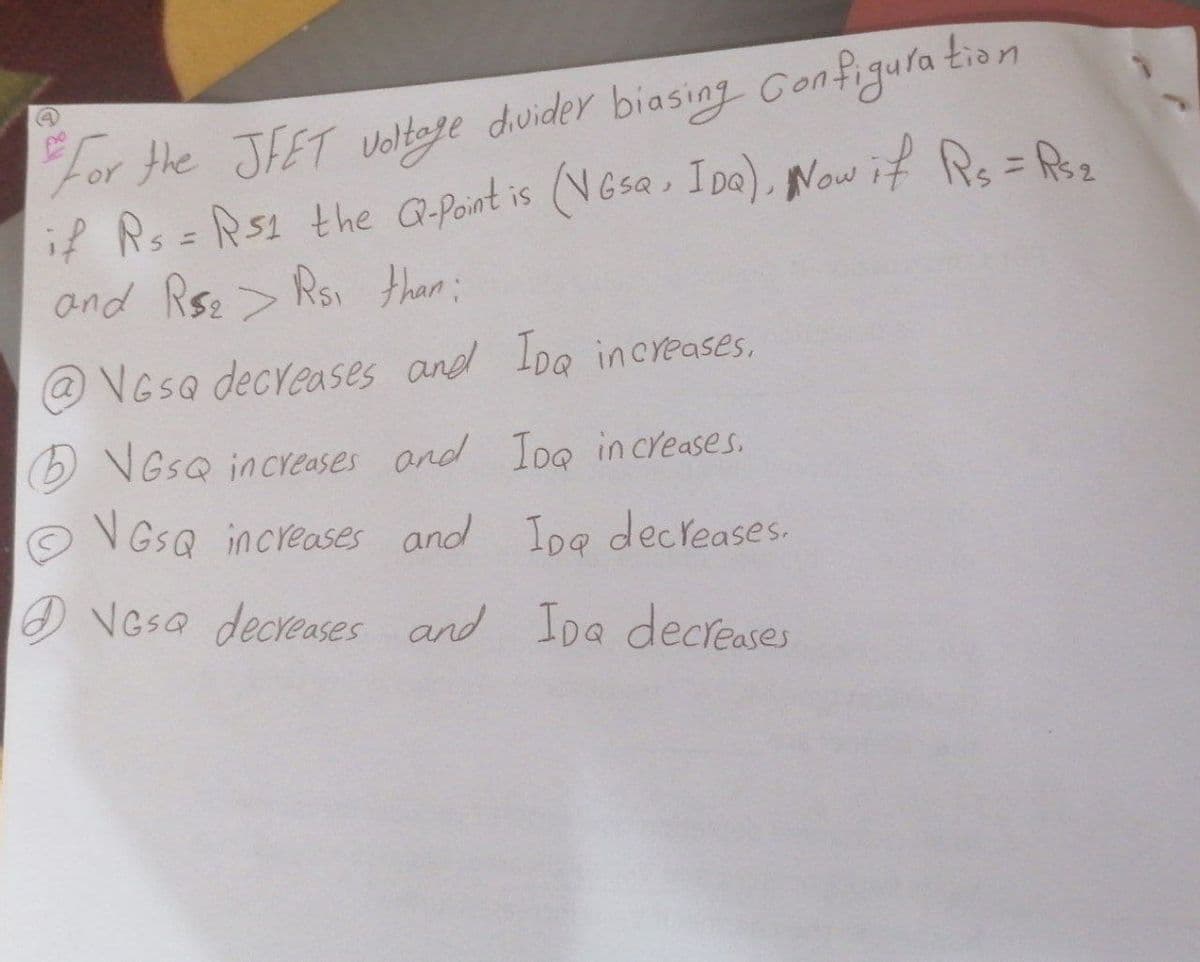 @
For the JFET Voltage divider biasing Configuration
if Rs = RS1 the Q-Point is (VGSQ, IDQ), Now if Rs = RS2
and RS2 > RS1 than;
@ VGSQ decreases and IDQ increases.
ⓑ VGSQ increases and IDQ increases.
ⓒ VGSQ increases and IDQ decreases.
ⓓ VGSQ decreases and IDQ decreases